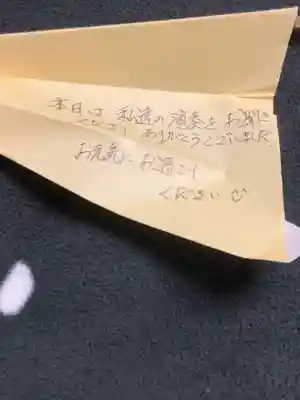 本日は 私達の演奏をお聴き
くださり ありがとうございました。
お元気にお過ごし
ください